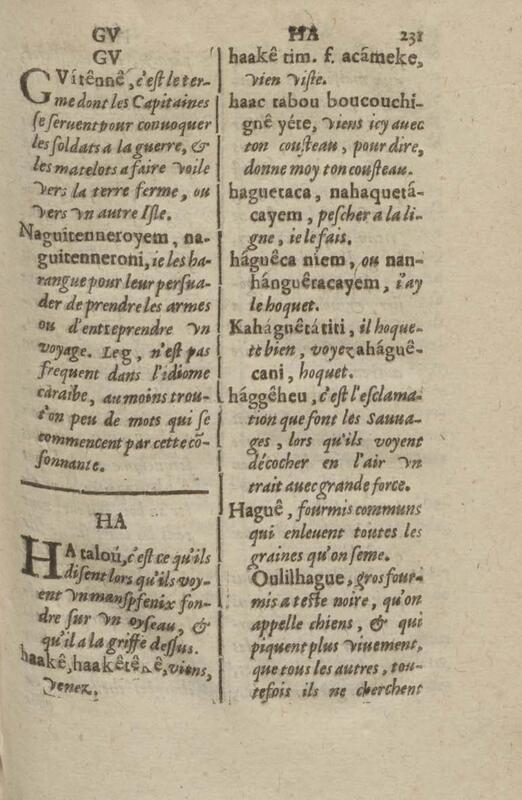 GV
HA 231
GV
GVitênnê, c'est le ter-
me dont les Capitaines
se seruent pour conuoquer
les soldats a la guerre, &
les matelots a faire voile
vers la terre ferme, ou
vers vn autre Isle.
Naguitenneroyem, na-
guitenneroni, ie les ha-
rangue pour leur persua-
der de prendre les armes
ou d'entreprendre vn
voyage. Leg, n'est pas
frequent dans l'idiome
caraibe, au moins trou-
t'on peu de mots qui se
commencent par cette cõ-
sonnante.
HA
HA taloú, c'est ce qu'ils
disent lors qu'ils voy-
ent vn mansphenix fon-
dre sur vn oyseau, &
qu'il a la griffe dessus.
haakê, haakêtênê, viens,
venez.
haakê tim. f. acámeke,
vien viste.
haac tabou boucouchi-
gnê yéte, viens icy auec
ton cousteau, pour dire,
donne moy ton cousteau.
haguetaca, nahaquetá-
cayem, pescher a la li-
gne, ie le fais.
háguêca niem, ou nan-
hánguêracayem, i'ay
le hoquet.
Kahágnêtátiti, il hoque-
te bien, voyez aháguê-
cani, hoquet.
hággêheu, c'est l'esclama-
tion que font les Sauua-
ges, lors qu'ils voyent
décocher en l'air vn
trait auec grande force.
Haguê, fourmis communs
qui enleuent toutes les
graines qu'on seme.
Oulilhague, gros four-
mis a teste noire, qu'on
appelle chiens, & qui
piquent plus viuement,
que tous les autres, tou-
tefois ils ne cherchent